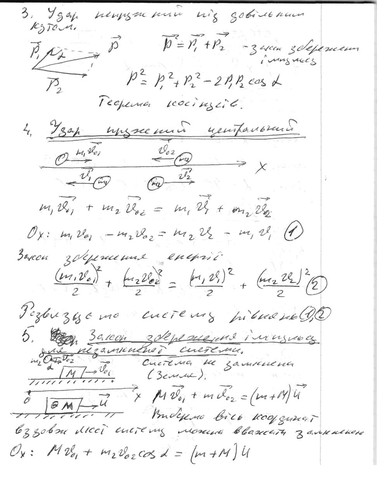 3. Удар непружний під довільним
кутом.
P⃗₁ α P⃗ P⃗ = P⃗₁ + P⃗₂ - закон збереження
імпульсу
P⃗₂ P² = P₁² + P₂² - 2P₁P₂cos α
Теорема косінусів.
4. Удар пружений центральний
m₁v⃗₀₁ v⃗₀₂ m₂ X
v⃗₁ m₁ m₂ v⃗₂
m₁v⃗₀₁ + m₂v⃗₀₂ = m₁v⃗₁ + m₂v⃗₂
Ox: m₁v₀₁ - m₂v₀₂ = m₂v₂ - m₁v₁ ①
Закон збереження енергії
(m₁v₀₁)²/2 + (m₂v₀₂)²/2 = (m₁v₁)²/2 + (m₂v₂)²/2 ②
систему рівнянь ① ②
5. Закон збереження імпульсу
для незамкненої системи.
m v⃗₀₂ α M v⃗₀₁ система не замкнена
(Земля).
0 x Mv⃗₀₁ + mv⃗₀₂ = (m+M)U⃗
M U⃗ вісь координат
вздовж якої систему можна вважати замкненою
Ox: Mv₀₁ + m₂v₀₂ cos α = (m+M)U